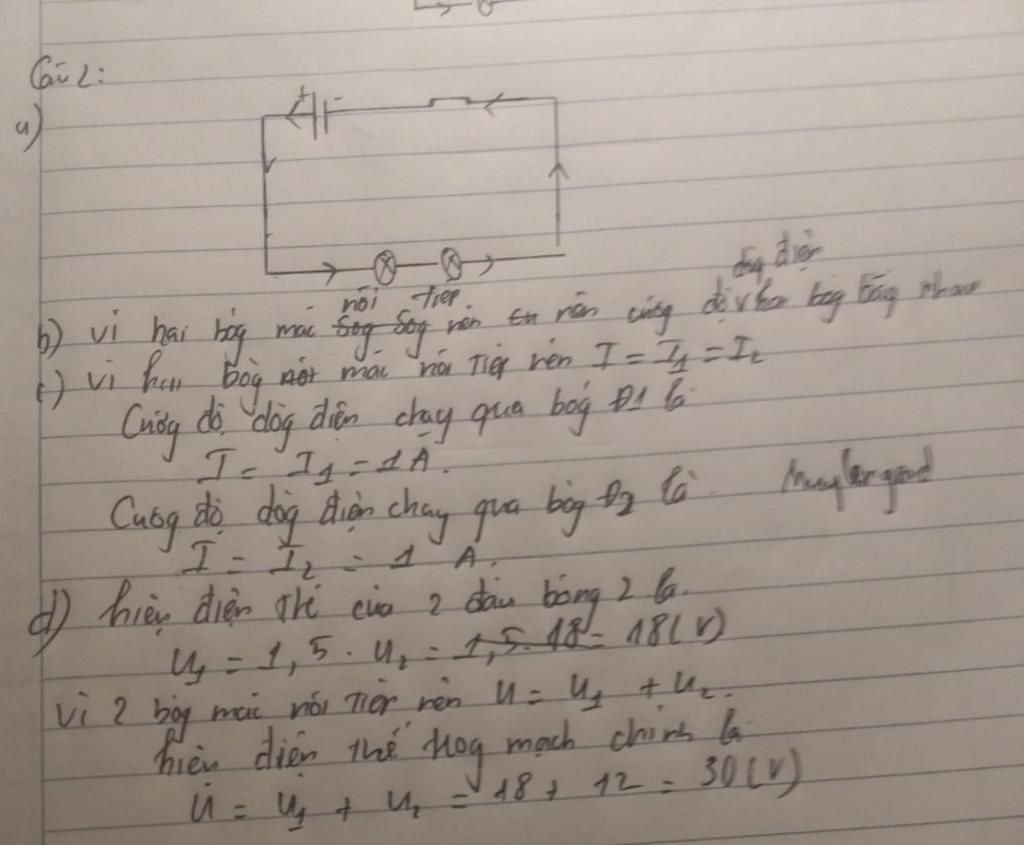 Câu 2:
a)
+ -
nối tiếp
dòng điện
b) vì hai bóg mắc sog sog nên nên cường độ hai bóg bằng nhau
c) vì hai bóg mắc nối tiếp nên I = I1 = I2
Cường độ dòg điện chạy qua bóg Đ1 là
I = I1 = 1 A.
Cuòg độ dòg điện chạy qua bóg Đ2 là
I = I2 = 1 A.
d) hiệu điện thế của 2 đầu bóng 2 là.
U1 = 1,5 . U2 = 1,5. 18 = 18(V)
Vì 2 bóg mắc nối tiếp nên U = U1 + U2.
hiệu điện thế trog mạch chính là
U = U1 + U2 = 18 + 12 = 30(V)